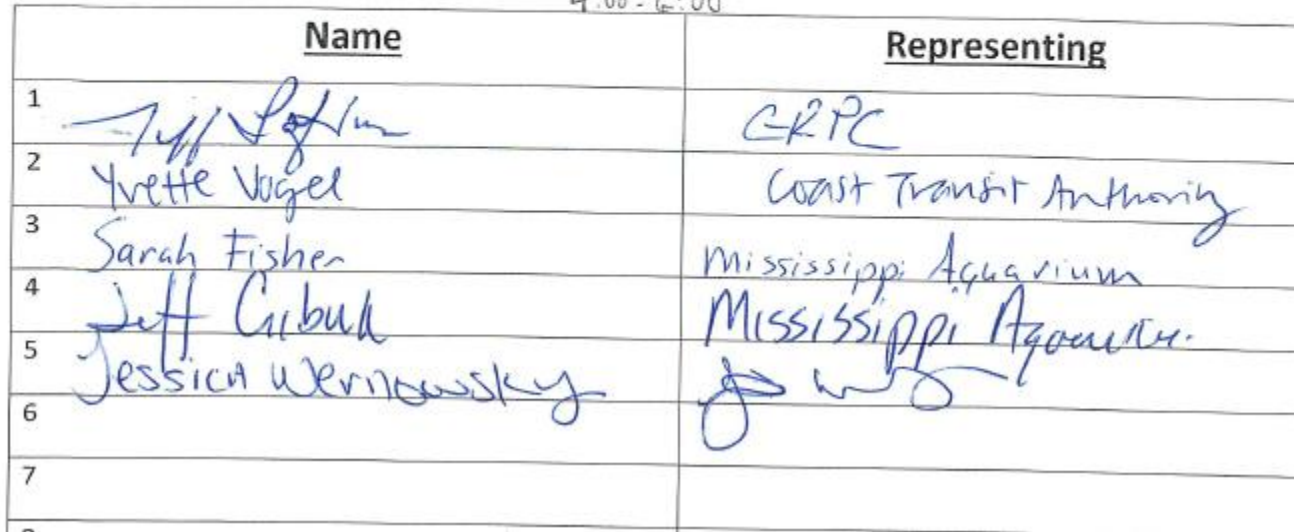 4:00-6:00
Name Representing
1 Jeff Loftus GRPC
2 Yvette Vogel Coast Transit Authority
3 Sarah Fisher Mississippi Aquarium
4 Jeff Mississippi
5 Jessica Wernowsky
6
7